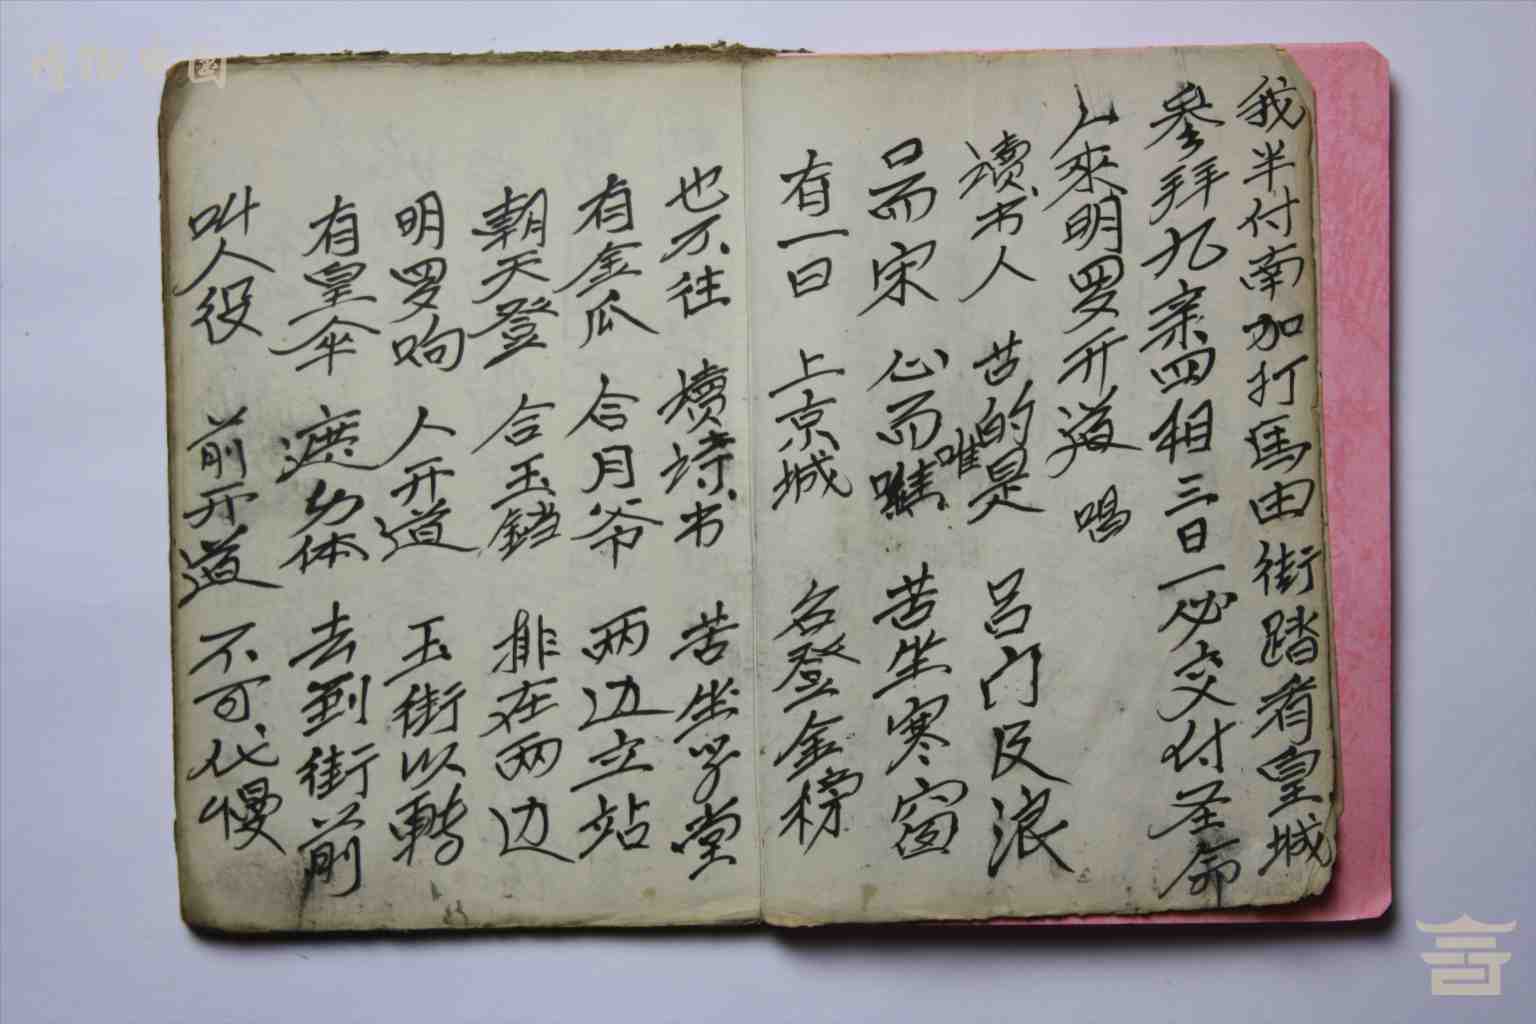 我半付南加打馬由街踏看皇城
參拜九亲四相三日一必交付圣命
人來明罗开道 唱
讀书人 苦的是 吕门反浪
口而宋 心而唯 苦坐寒窗
唯
有一日 上京城 名登金榜
也不往 讀诗书 苦坐学堂
有金瓜 合月爷 两边立站
朝天登 合玉鐺 排在两边
明罗响 人开道 玉街以轉
有皇伞 遮幼体 去到街前
叫人役 前开道 不可代慢